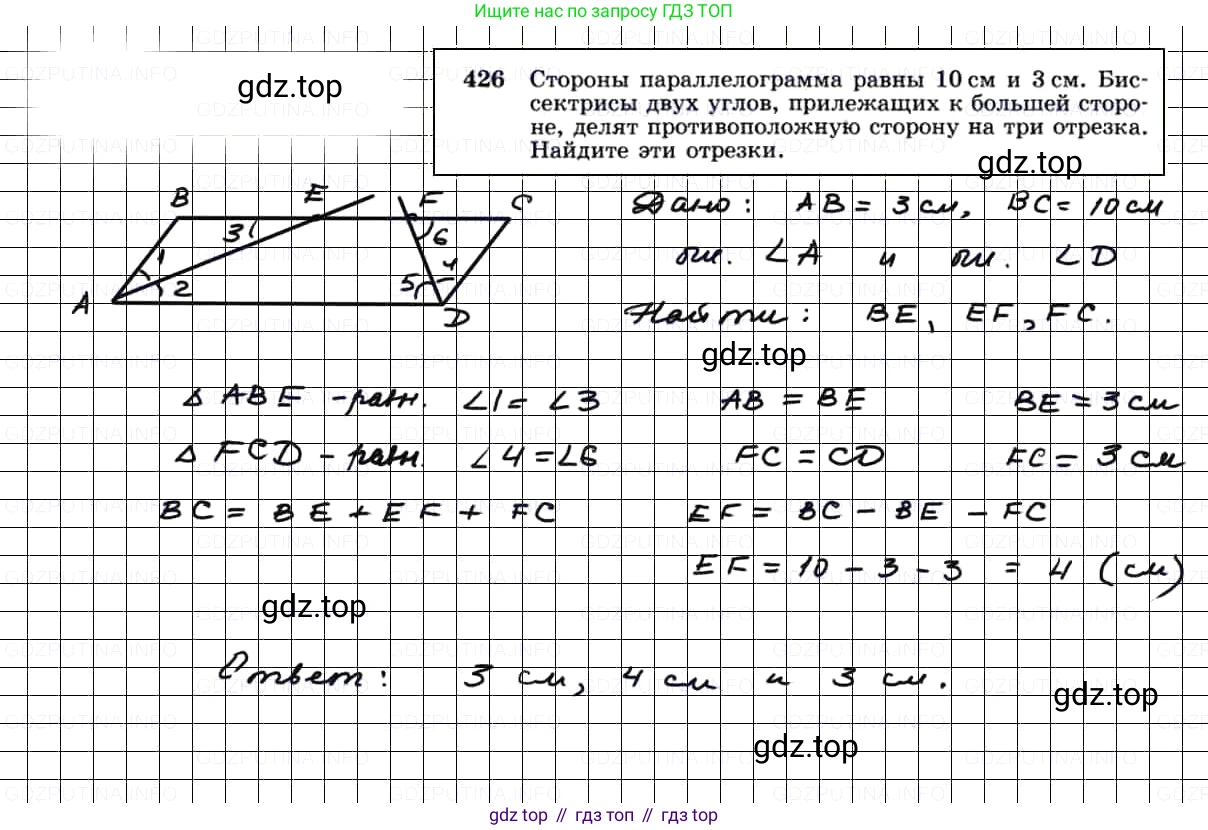 Ищите нас по запросу ГДЗ ТОП
gdz.top
426 Стороны параллелограмма равны 10 см и 3 см. Бис-
сектрисы двух углов, прилежащих к большей сторо-
не, делят противоположную сторону на три отрезка.
Найдите эти отрезки.
gdz.top
B E F C
3 6
1 4
2 5
A D
Дано: AB = 3 см, BC = 10 см
бис. ∠A и бис. ∠D
Найти: BE, EF, FC.
gdz.top
△ ABE - равн. ∠1 = ∠3 AB = BE BE = 3 см
△ FCD - равн. ∠4 = ∠6 FC = CD FC = 3 см
BC = BE + EF + FC EF = BC - BE - FC
EF = 10 - 3 - 3 = 4 (см)
gdz.top
Ответ: 3 см, 4 см и 3 см.
gdz.top
gdz.top
gdz top // гдз топ // гдз top
GDZPUTINA.INFO